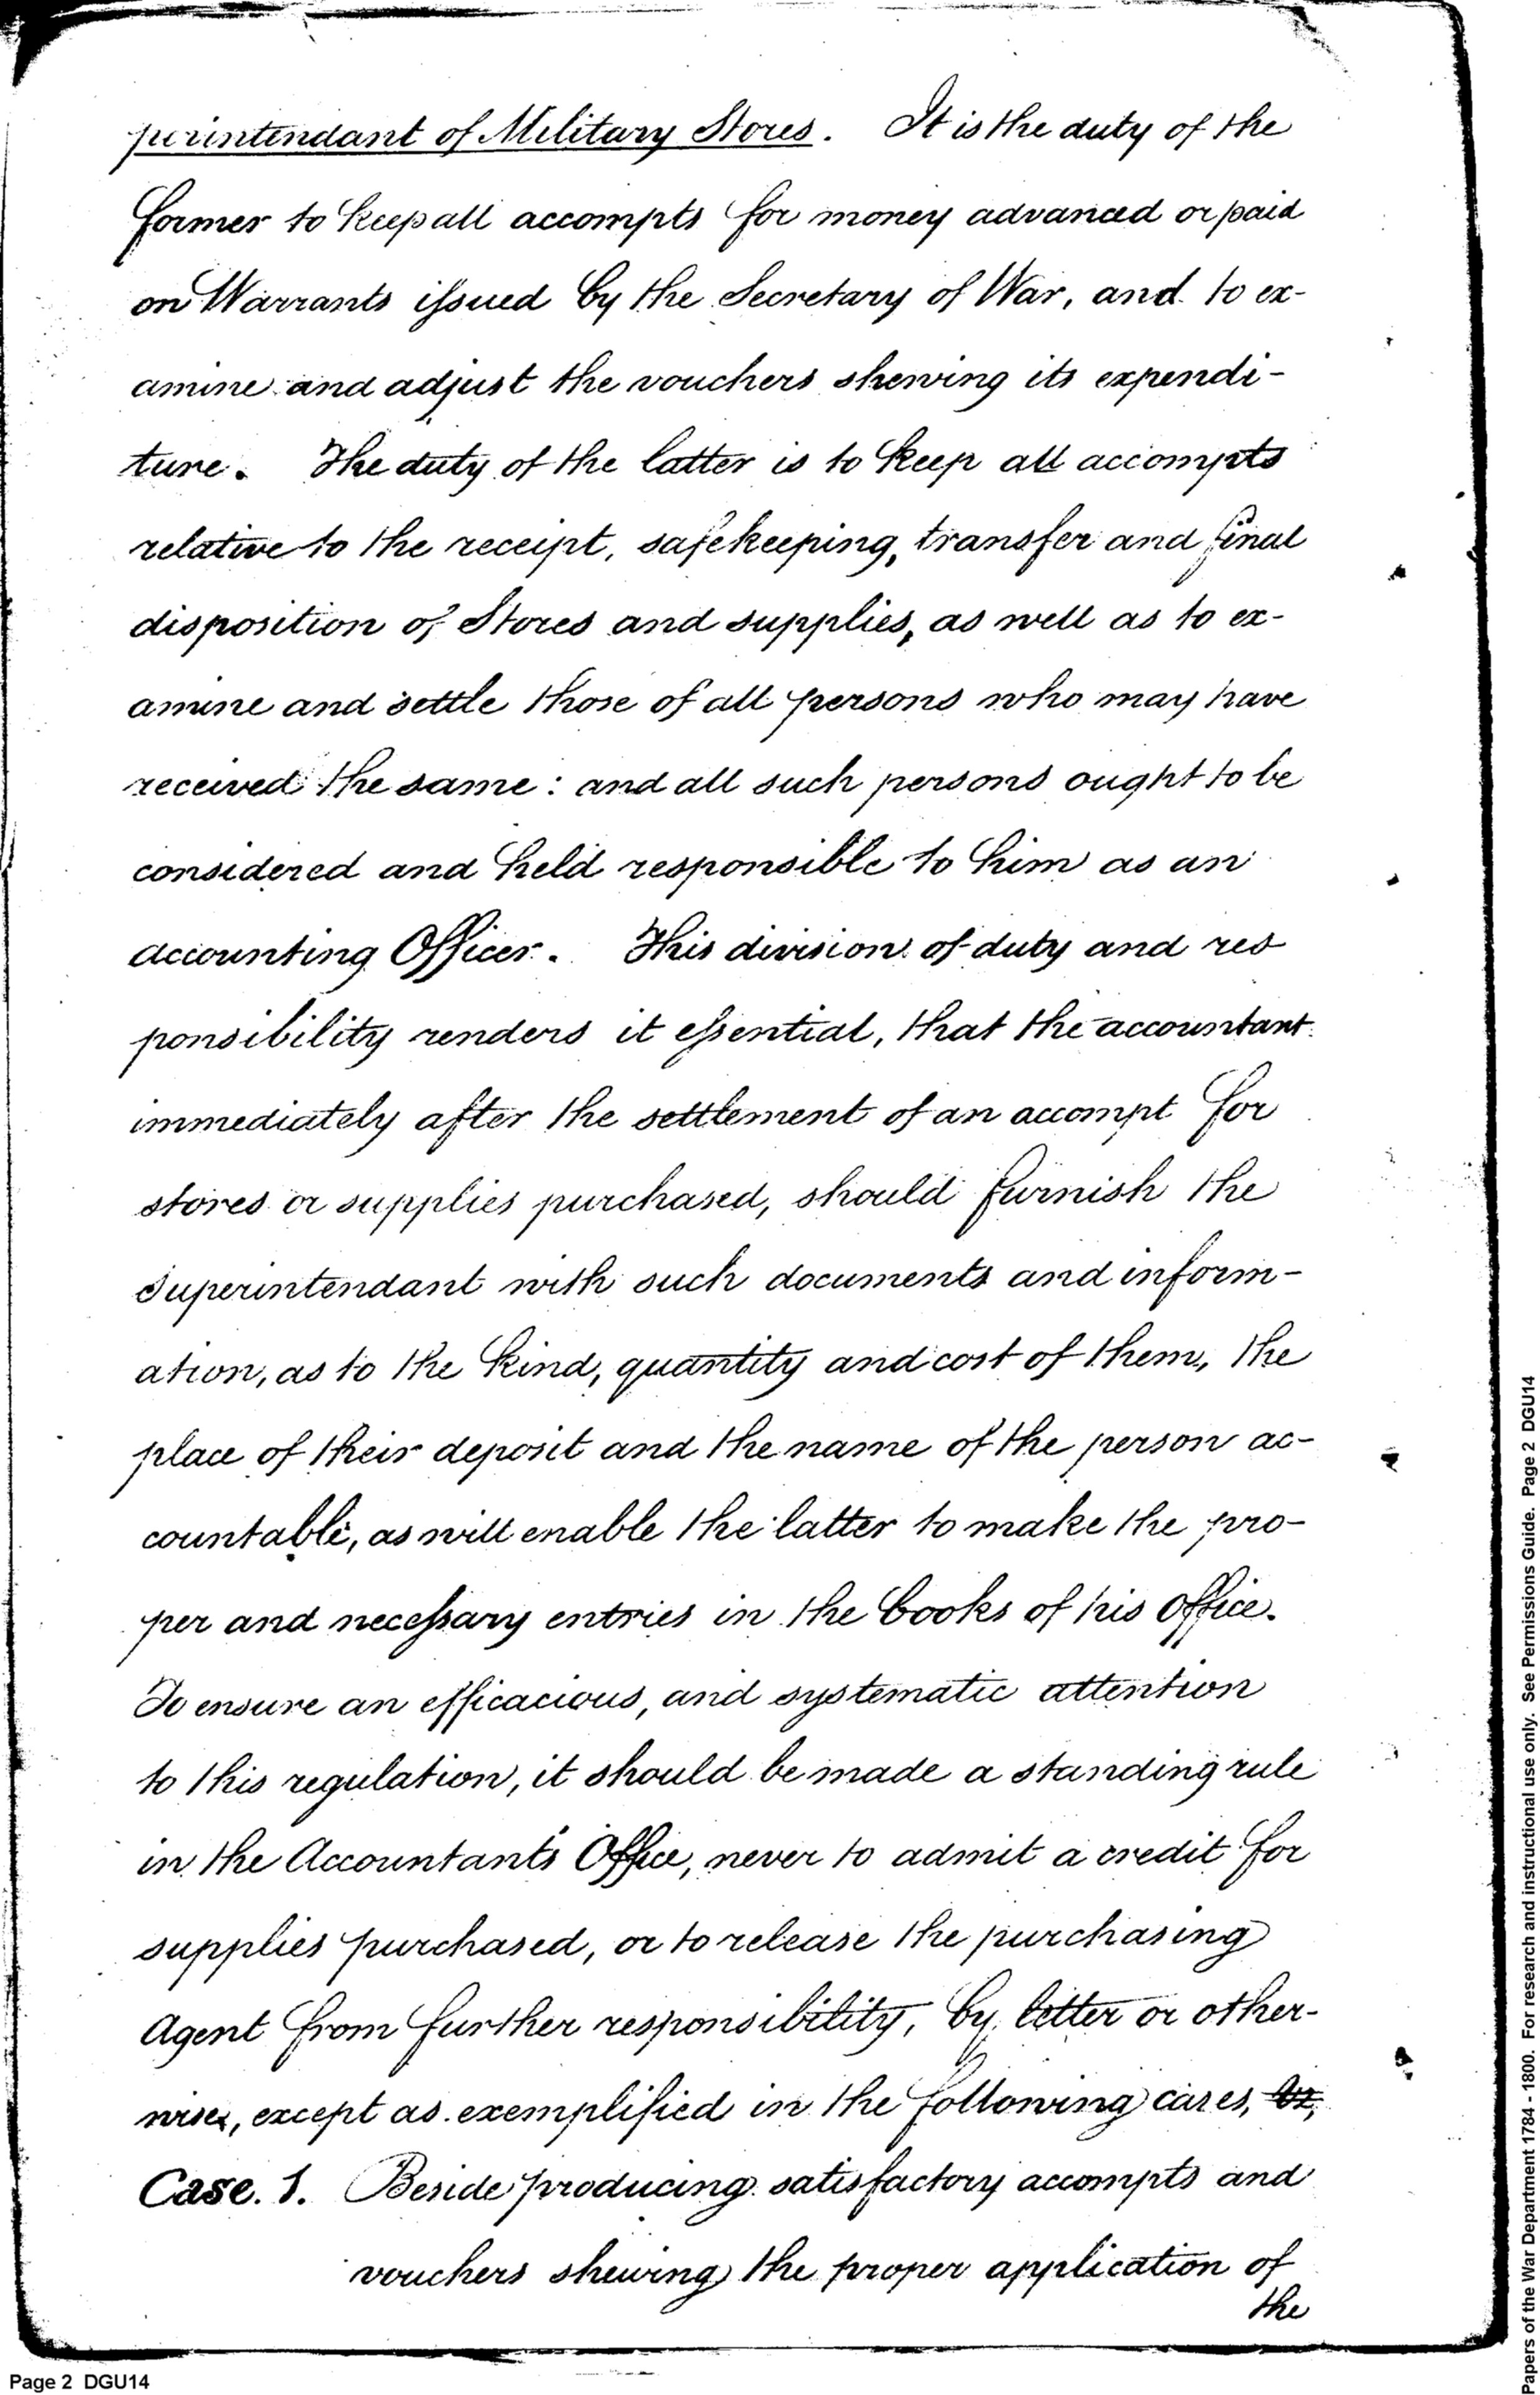 perintendant of Military Stores. It is the duty of the
former to keep all accompts for money advanced or paid
on Warrants issued by the Secretary of War, and to ex-
amine and adjust the vouchers shewing its expendi-
ture. The duty of the latter is to keep all accompts
relative to the receipt, safekeeping, transfer and final
disposition of Stores and supplies, as well as to ex-
amine and settle those of all persons who may have
received the same: and all such persons ought to be
considered and held responsible to him as an
accounting Officer. This division of duty and res
ponsibility renders it essential, that the accountant
immediately after the settlement of an accompt for
stores or supplies purchased, should furnish the
Superintendant with such documents and inform-
ation, as to the kind, quantity and cost of them, the
place of their deposit and the name of the person ac-
countable, as will enable the latter to make the pro-
per and necessary entries in the books of his office.
To ensure an efficacious, and systematic attention
to this regulation, it should be made a standing rule
in the Accountant's Office, never to admit a credit for
supplies purchased, or to release the purchasing
Agent from further responsibility, by letter or other-
wise, except as exemplified in the following cases,
Case. 1. Beside producing satisfactory accompts and
vouchers shewing the proper application of
the
Page 2 DGU14
Papers of the War Department 1784 - 1800. For research and instructional use only. See Permissions Guide. Page 2 DGU14